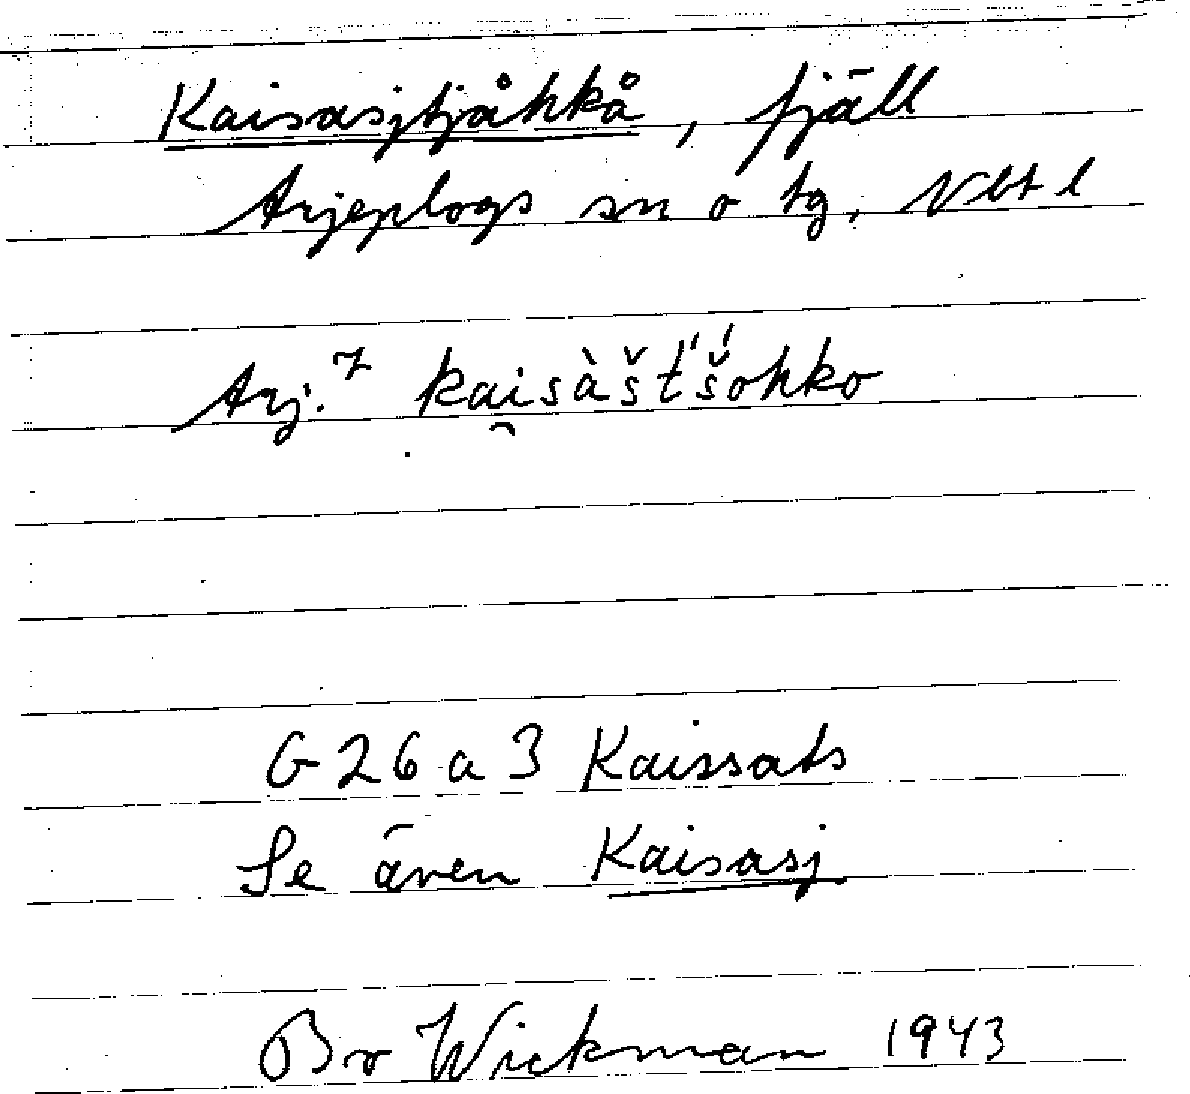 Kaisasjtjåhkå, fjäll
Arjeplogs sn o tg, Vbt l
Arj.7 kai̯sàšt́'š́ohko
G 26 a 3 Kaissats
Se även Kaisasj.
Bo Wickman 1943